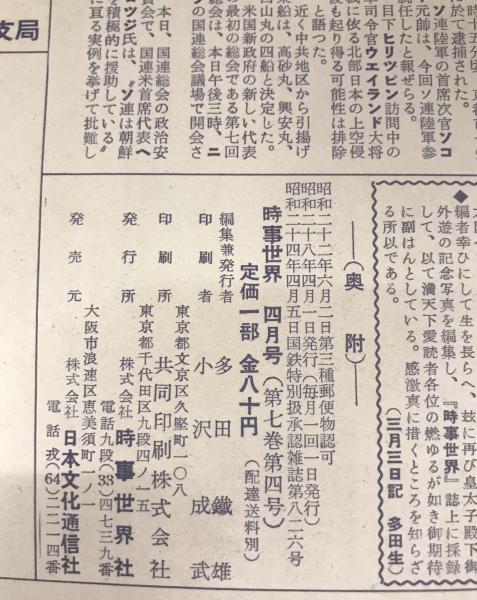 時十五分頃、
於て逮捕された。
ソ連陸軍の首席次官ソコ
元帥は、今回ソ連陸軍参
就任したと報ぜらる。
目下ヒリツピン訪問中の
軍司令官ウエイランド大将
機に依る北部日本の上空侵
後も起り得る可能性は排除
と語つた。
近く中共地区から引揚げ
乗船は、高砂丸、興安丸、
白山丸の四船と決定した。
米国新政府の新しい代表
の最初の総会である第七回
総会は、本日午後三時、ニ
の国連総会議場で開会さ
本日、国連総会の政治安
員会で、国連米首席代表ヘ
ロッジ氏は、〝ソ連は朝鮮
を積極的に援助している〟
に亘る実例を挙げて批難し
支局
◆
編者幸ひにして生を長らへ、玆に再び皇太子殿下御
外遊の記念写真を編集し、『時事世界』誌上に採録
して、以て満天下愛読者各位の燃ゆるが如き御期待
に副はんとしている。感激真に措くところを知らざ
る所以である。
（三月三日記　多田生）
──（奥附）──
昭和二十二年六月二日第三種郵便物認可
昭和二十八年四月一日発行（毎月一回一日発行）
昭和二十四年四月五日国鉄特別扱承認雑誌第八二六号
時事世界　四月号（第七巻第四号）
定価一部　金八十円（配達送料別）
編集兼発行者　多田鐵雄
印刷者　小沢成武
東京都文京区久堅町一〇八
印刷所　共同印刷株式会社
東京都千代田区九段四ノ一五
発行所　株式会社　時事世界社
電話九段（33）四七三九番
大阪市浪速区恵美須町一ノ一
発売元　株式会社　日本文化通信社
電話戎（64）二二一四番